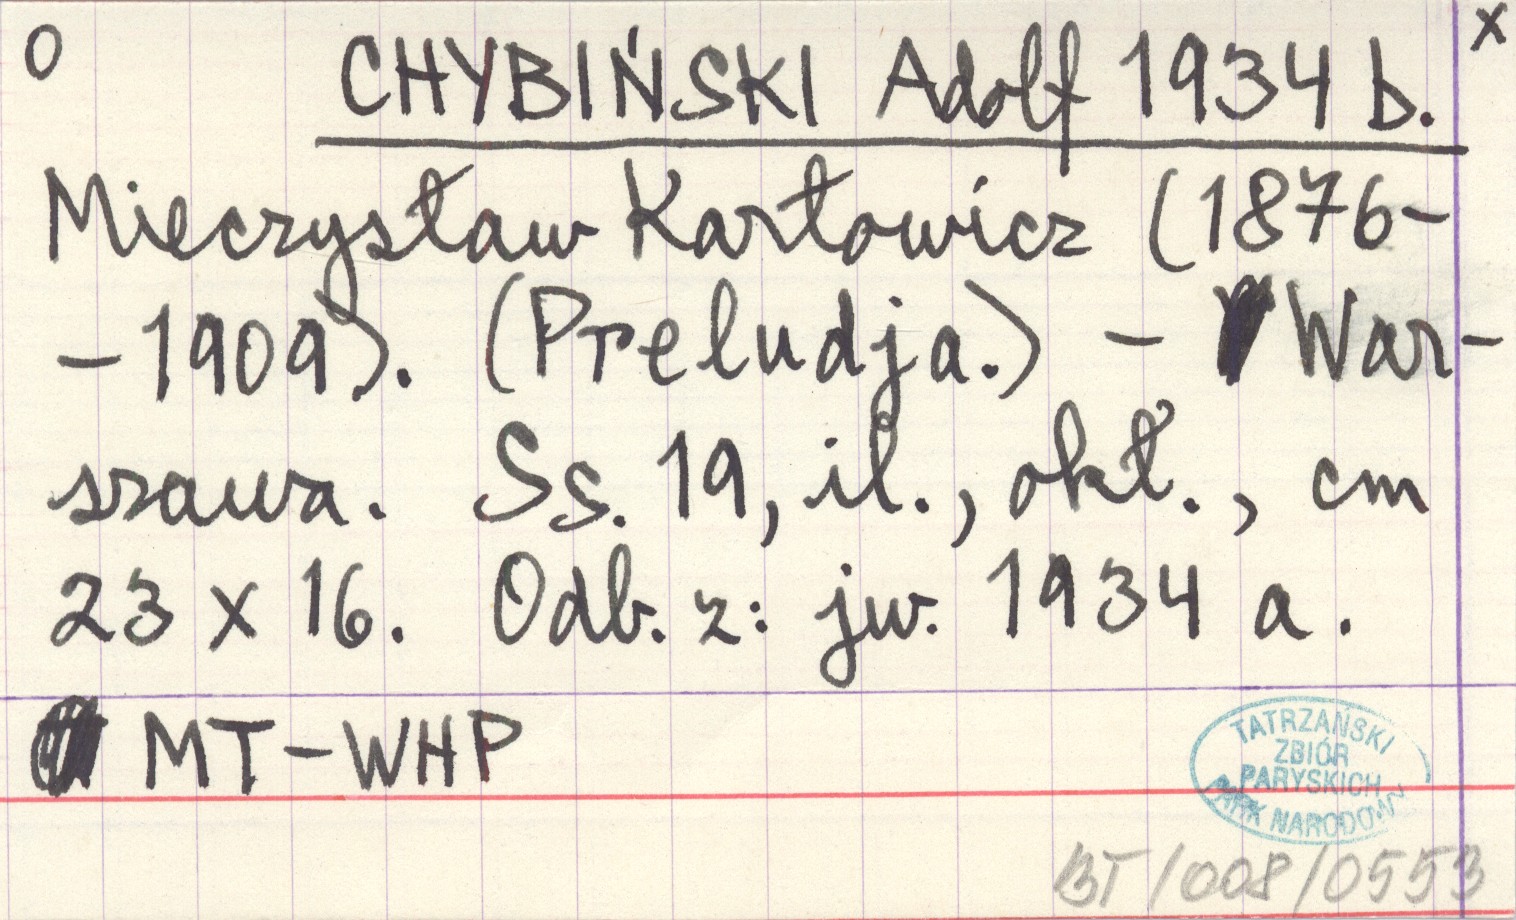 O CHYBIŃSKI Adolf 1934 b. x
Mieczysław Karłowicz (1876-
-1909). (Preludja.) - War-
szawa. Ss. 19, il., okł., cm
23 x 16. Odb. z: jw. 1934 a.
MT-WHP
TATRZAŃSKI
ZBIÓR
PARYSKICH
PARK NARODOWY
BT/008/0553